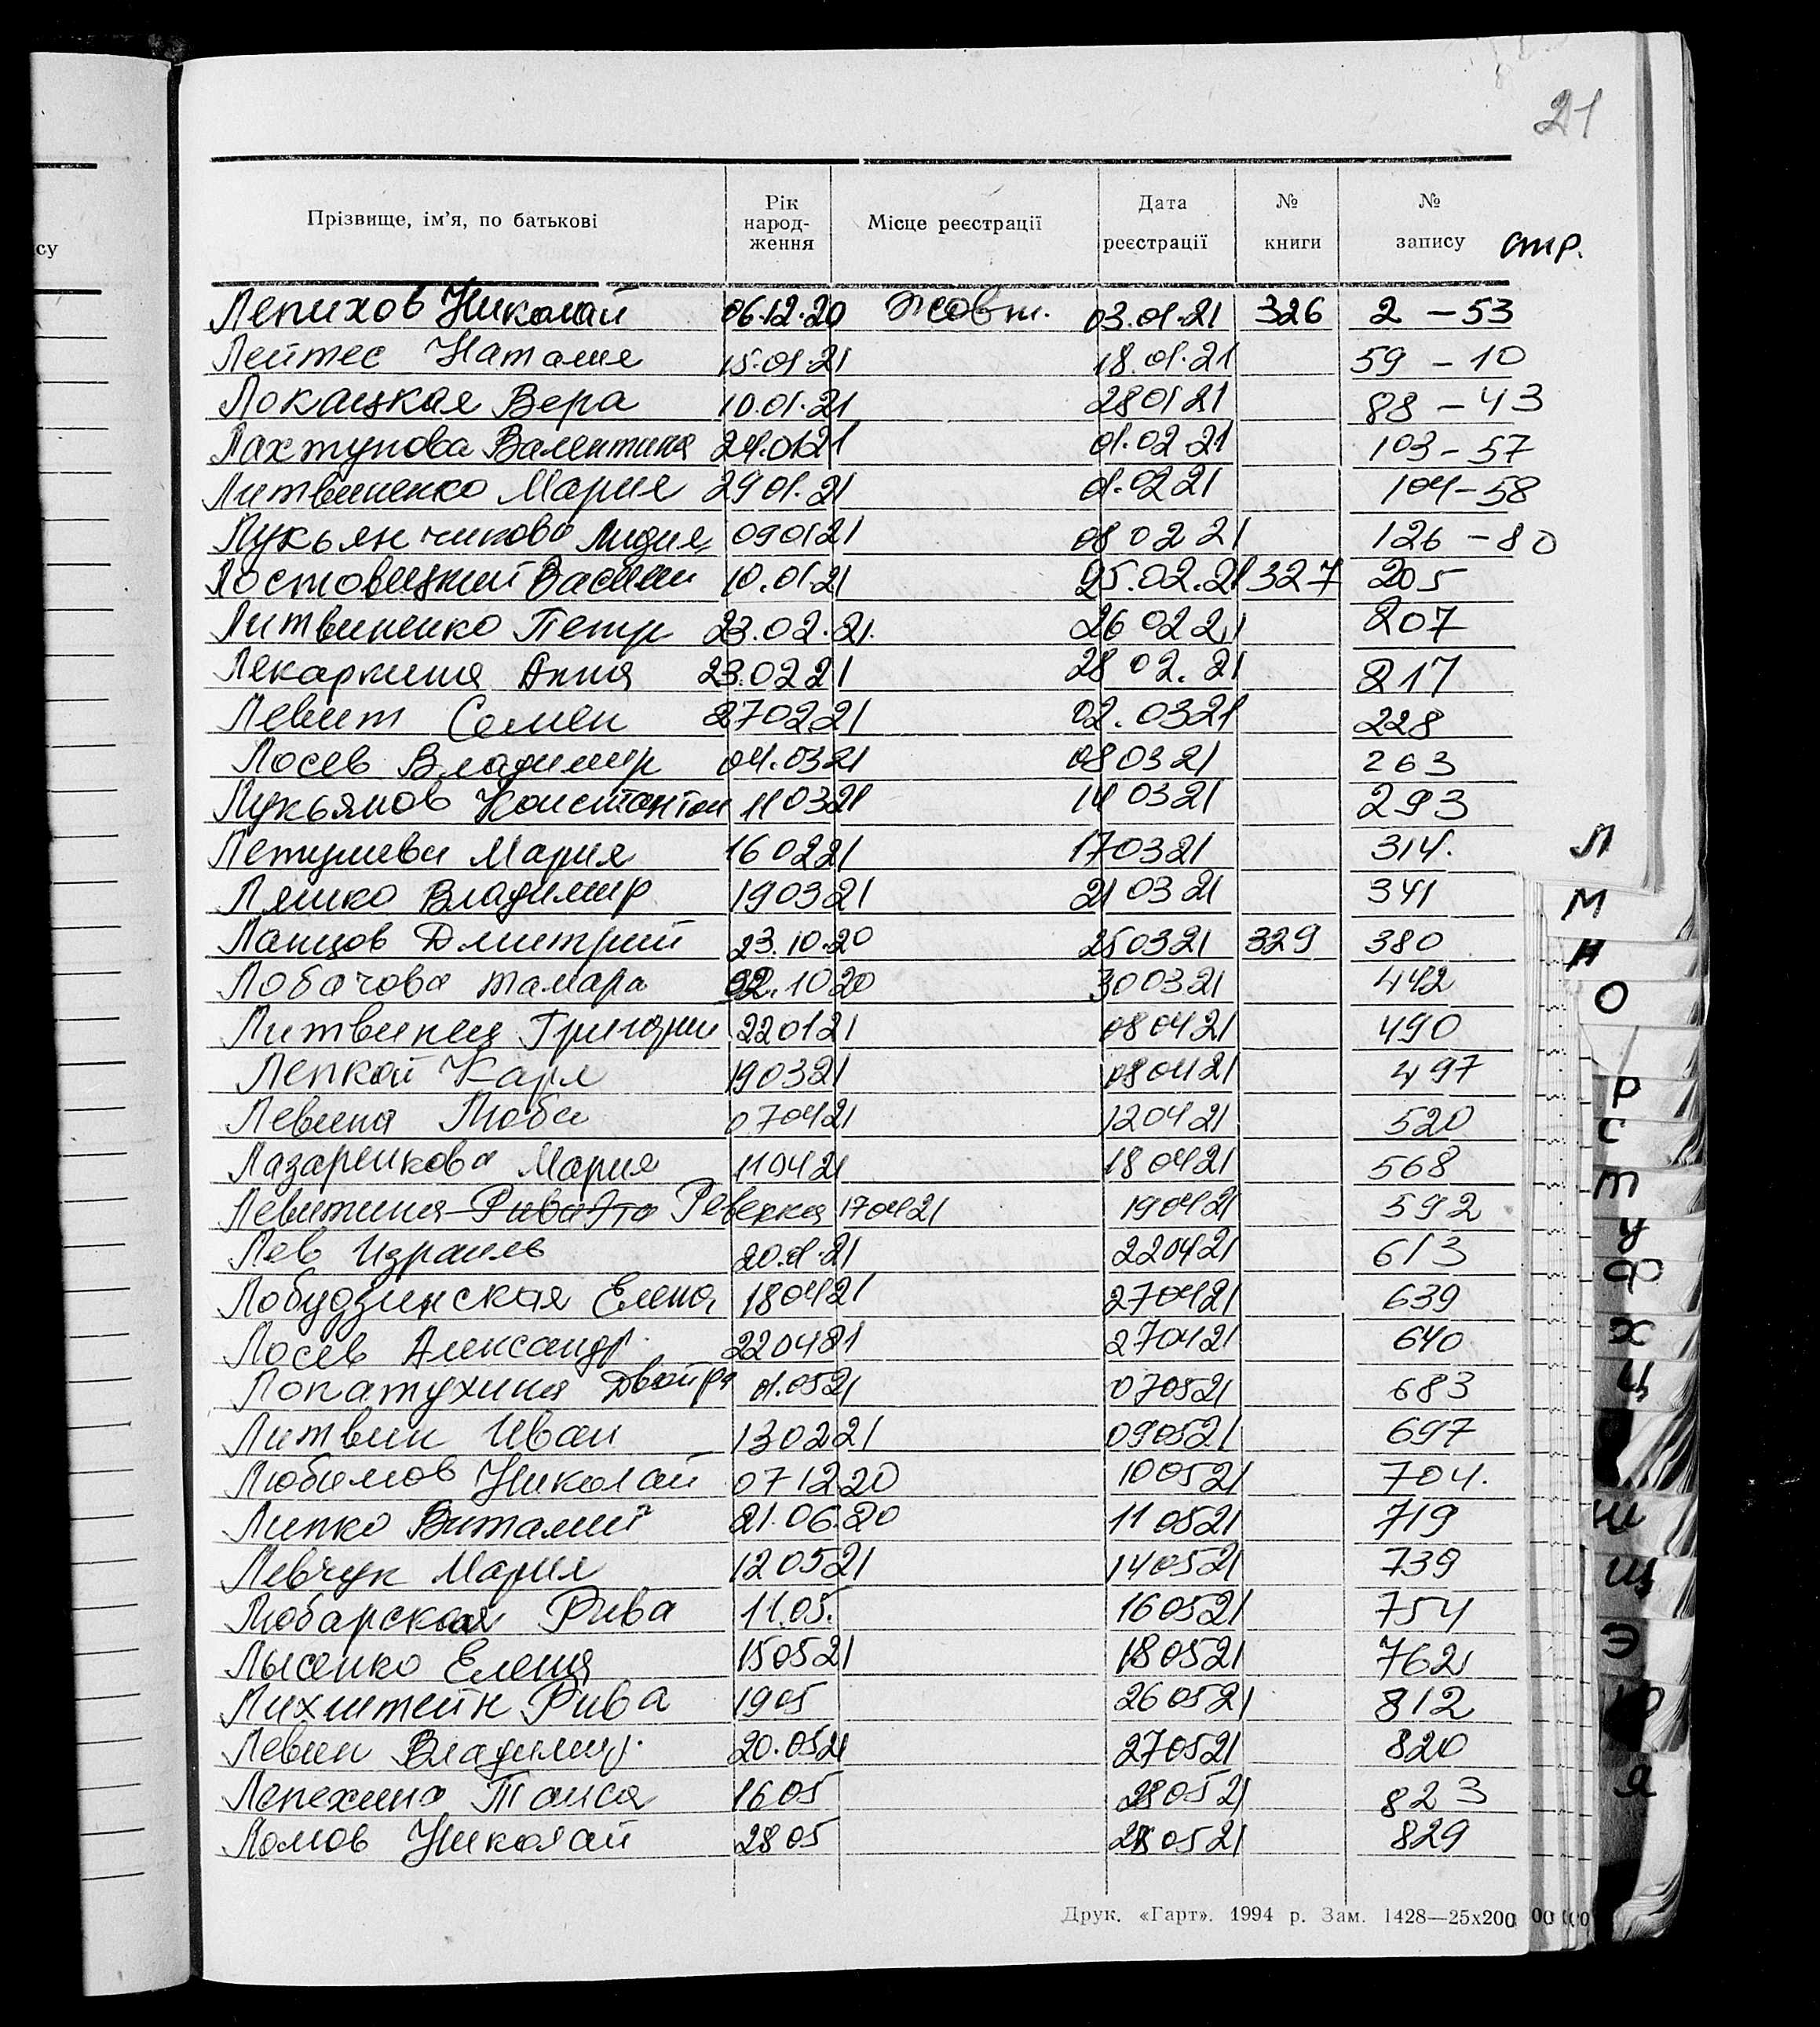 21
Прізвище, ім'я, по батькові Рік народ-ження Місце реєстрації Дата реєстрації № книги № запису стр.
Лепихов Николай 06.12.20 Жовт. 03.01.21 326 2 – 53
Лейтес Наталия 15.01.21 18.01.21 59 – 10
Локацкая Вера 10.01.21 28 01 21 88 – 43
Лахтунова Валентина 24.01 21 01.02 21 103 – 57
Литвиненко Мария 29 01.21 01.02 21 104 – 58
Лукьянчикова Лидия 09 01 21 08 02 21 126 – 80
Лостовецкий Василий 10.01.21 25.02.21 327 205
Литвиненко Петр 23.02.21. 26 02 21 207
Лекаркина Анна 23.02 21 28 02.21 217
Левит Семен 27 02 21 02.03 21 228
Лосев Владимир 04.03 21 08 03 21 263
Лукьянов Константин 11 03 21 14 03 21 293
Летушева Мария 16 02 21 17 03 21 314.
Ляшко Владимир 19 03 21 21 03 21 341
Ланцов Дмитрий 23.10.20 25 03 21 329 380
Лобачова Тамара 02.10 20 30 03 21 442
Литвинец Григории 22 01 21 08 04 21 490
Лепкой Карл 19 03 21 08 04 21 497
Левина Люба 07 04 21 12 04 21 520
Лазаренкова Мария 11 04 21 18 04 21 568
Левитина Рива Ревекка 17 04 21 19 04 21 592
Лев Израиль 20.01.21 22 04 21 613
Лобудзинская Елена 18 04 21 27 04 21 639
Лосев Александр. 22 04 21 27 04 21 640
Лопатухина Двойра 01.05 21 07 05 21 683
Литвин Иван 13 02 21 09 05 21 697
Любимов Николай 07 12 20 10 05 21 704.
Липко Виталий 21.06.20 11 05 21 719
Левчук Мария 12 05 21 14 05 21 739
Любарская Рива 11.05. 16 05 21 754
Лысенко Елена 15 05 21 18 05 21 762
Лихштейн Рива 19 05 26 05 21 812
Левин Владимир. 20.05 21 27 05 21 820
Лепехина Таиса 16 05 28 05 21 823
Ломов Николай 28 05 28 05 21 829
Друк. «Гарт». 1994 р. Зам. 1428—25х200
су
Л
М
Н
О
Р
С
Т
У
Ф
Х
Ц
Ш
Щ
Э
Ю
Я